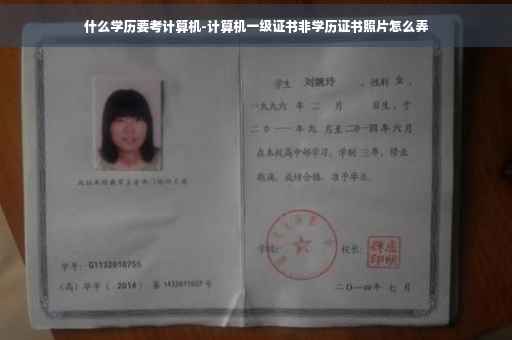 什么学历要考计算机-计算机一级证书非学历证书照片怎么弄
学生 刘婉玲 ，性别 女 ，
一九九六 年 二 月 日生，于
二〇一一 年 九 月至 二〇一四 年 六 月
在本校高中部学习，学制 三 年，修业
期满，成绩合格，准予毕业。
学校： 校长：
学号： G1132010755
（高）毕字（ 2014 ）第 1432011027 号
二〇一四 年 七 月